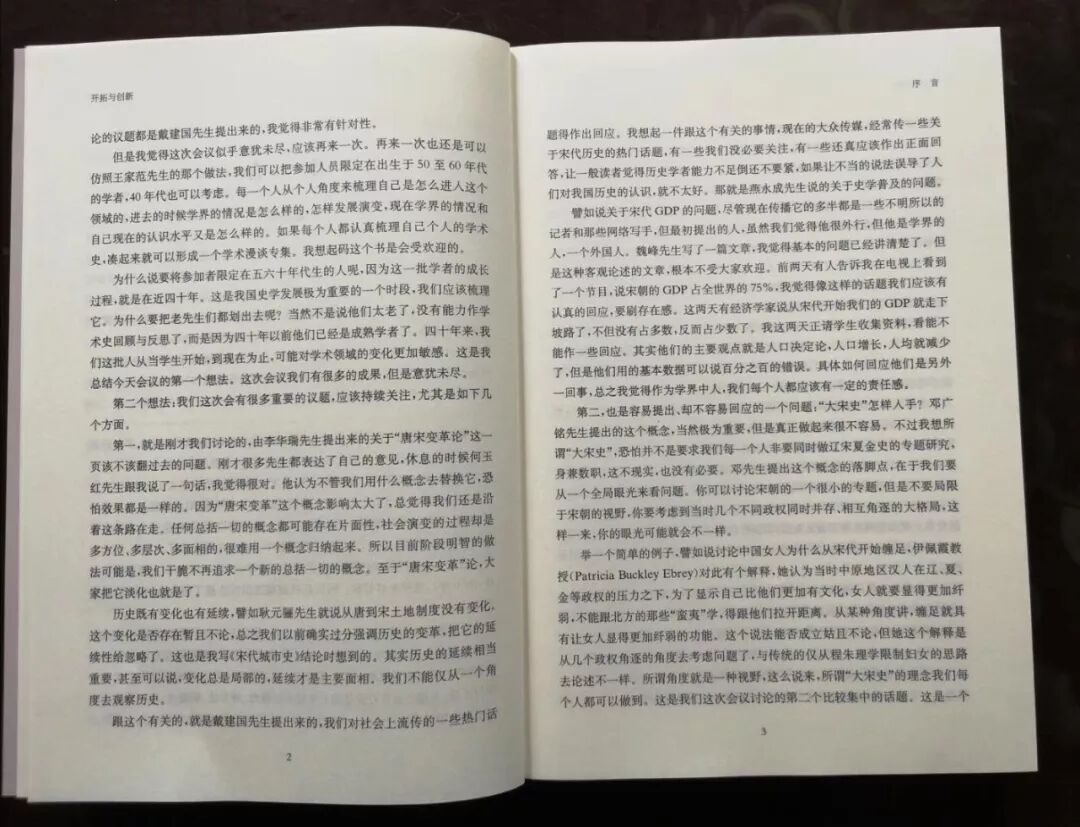 开拓与创新
论的议题都是戴建国先生提出来的,我觉得非常有针对性。
但是我觉得这次会议似乎意犹未尽,应该再来一次。再来一次也还是可以
仿照王家范先生的那个做法,我们可以把参加人员限定在出生于 50 至 60 年代
的学者,40 年代也可以考虑。每一个人从个人角度来梳理自己是怎么进入这个
领域的,进去的时候学界的情况是怎么样的,怎样发展演变,现在学界的情况和
自己现在的认识水平又是怎么样的。如果每个人都认真梳理自己个人的学术
史,凑起来就可以形成一个学术漫谈专集。我想起码这个书是会受欢迎的。
为什么说要将参加者限定在五六十年代生的人呢,因为这一批学者的成长
过程,就是在近四十年。这是我国史学发展极为重要的一个时段,我们应该梳理
它。为什么要把老先生们都划出去呢?当然不是说他们太老了,没有能力作学
术史回顾与反思了,而是因为四十年以前他们已经是成熟学者了。四十年来,我
们这批人从当学生开始,到现在为止,可能对学术领域的变化更加敏感。这是我
总结今天会议的第一个想法。这次会议我们有很多的成果,但是意犹未尽。
第二个想法:我们这次会有很多重要的议题,应该持续关注,尤其是如下几
个方面。
第一,就是刚才我们讨论的,由李华瑞先生提出来的关于“唐宋变革论”这一
页该不该翻过去的问题。刚才很多先生都表达了自己的意见,休息的时候何玉
红先生跟我说了一句话,我觉得很对。他认为不管我们用什么概念去替换它,恐
怕效果都是一样的。因为“唐宋变革”这个概念影响太大了,总觉得我们还是沿
着这条路在走。任何总括一切的概念都可能存在片面性,社会演变的过程却是
多方位、多层次、多面相的,很难用一个概念归纳起来。所以目前阶段明智的做
法可能是,我们干脆不再追求一个新的总括一切的概念。至于“唐宋变革”论,大
家把它淡化也就是了。
历史既有变化也有延续,譬如耿元骊先生就说从唐到宋土地制度没有变化,
这个变化是否存在暂且不论,总之我们以前确实过分强调历史的变革,把它的延
续性给忽略了。这也是我写《宋代城市史》结论时想到的。其实历史的延续相当
重要,甚至可以说,变化总是局部的,延续才是主要面相。我们不能仅从一个角
度去观察历史。
跟这个有关的,就是戴建国先生提出来的,我们对社会上流传的一些热门话
2
序 言
题得作出回应。我想起一件跟这个有关的事情,现在的大众传媒,经常传一些关
于宋代历史的热门话题,有一些我们没必要关注,有一些还真应该作出正面回
答,让一般读者觉得历史学者能力不足倒还不要紧,如果让不当的说法误导了人
们对我国历史的认识,就不太好。那就是燕永成先生说的关于史学普及的问题。
譬如说关于宋代 GDP 的问题,尽管现在传播它的多半都是一些不明所以的
记者和那些网络写手,但最初提出的人,虽然我们觉得他很外行,但他是学界的
人,一个外国人。魏峰先生写了一篇文章,我觉得基本的问题已经讲清楚了。但
是这种客观论述的文章,根本不受大家欢迎。前两天有人告诉我在电视上看到
了一个节目,说宋朝的 GDP 占全世界的 75%,我觉得像这样的话题我们应该有
认真的回应,要刷存在感。这两天有经济学家说从宋代开始我们的 GDP 就走下
坡路了,不但没有占多数,反而占少数了。我这两天正请学生收集资料,看能不
能作一些回应。其实他们的主要观点就是人口决定论,人口增长,人均就减少
了,但是他们用的基本数据可以说百分之百的错误。具体如何回应他们是另外
一回事,总之我觉得作为学界中人,我们每个人都应该有一定的责任感。
第二,也是容易提出、却不容易回应的一个问题,“大宋史”怎样入手?邓广
铭先生提出的这个概念,当然极为重要,但是真正做起来很不容易。不过我想所
谓“大宋史”,恐怕并不是要求我们每一个人非要同时做辽宋夏金史的专题研究,
身兼数职,这不现实,也没有必要。邓先生提出这个概念的落脚点,在于我们要
从一个全局眼光来看问题。你可以讨论宋朝的一个很小的专题,但是不要局限
于宋朝的视野,你要考虑到当时几个不同政权同时并存、相互角逐的大格局,这
样一来,你的眼光可能就会不一样。
举一个简单的例子,譬如说讨论中国女人为什么从宋代开始缠足,伊佩霞教
授(Patricia Buckley Ebrey)对此有个解释,她认为当时中原地区汉人在辽、夏、
金等政权的压力之下,为了显示自己比他们更加有文化,女人就要显得更加纤
弱,不能跟北方的那些“蛮夷”学,得跟他们拉开距离。从某种角度讲,缠足就具
有让女人显得更加纤弱的功能。这个说法能否成立姑且不论,但她这个解释是
从几个政权角逐的角度去考虑问题了,与传统的仅从程朱理学限制妇女的思路
去论述不一样。所谓角度就是一种视野,这么说来,所谓“大宋史”的理念我们每
个人都可以做到。这是我们这次会议讨论的第二个比较集中的话题。这是一个
3